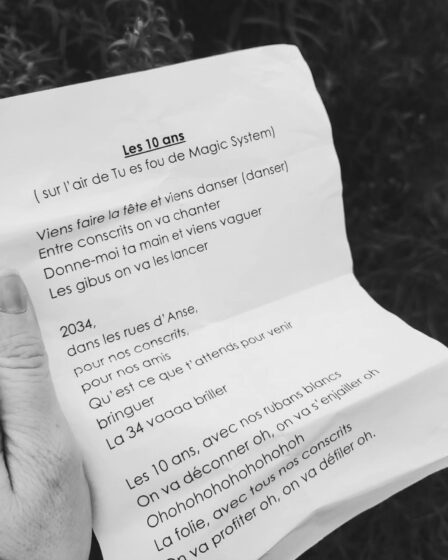 Les 10 ans
( sur l'air de Tu es fou de Magic System)
Viens faire la fête et viens danser (danser)
Entre conscrits on va chanter
Donne-moi ta main et viens vaguer
Les gibus on va les lancer
2034,
dans les rues d'Anse,
pour nos conscrits,
pour nos amis
Qu'est ce que t'attends pour venir
bringuer
La 34 vaaaa briller
Les 10 ans, avec nos rubans blancs
On va déconner oh, on va s'enjailler oh
Ohohohohohohohohoh
La folie, avec tous nos conscrits
On va profiter oh, on va défiler oh.